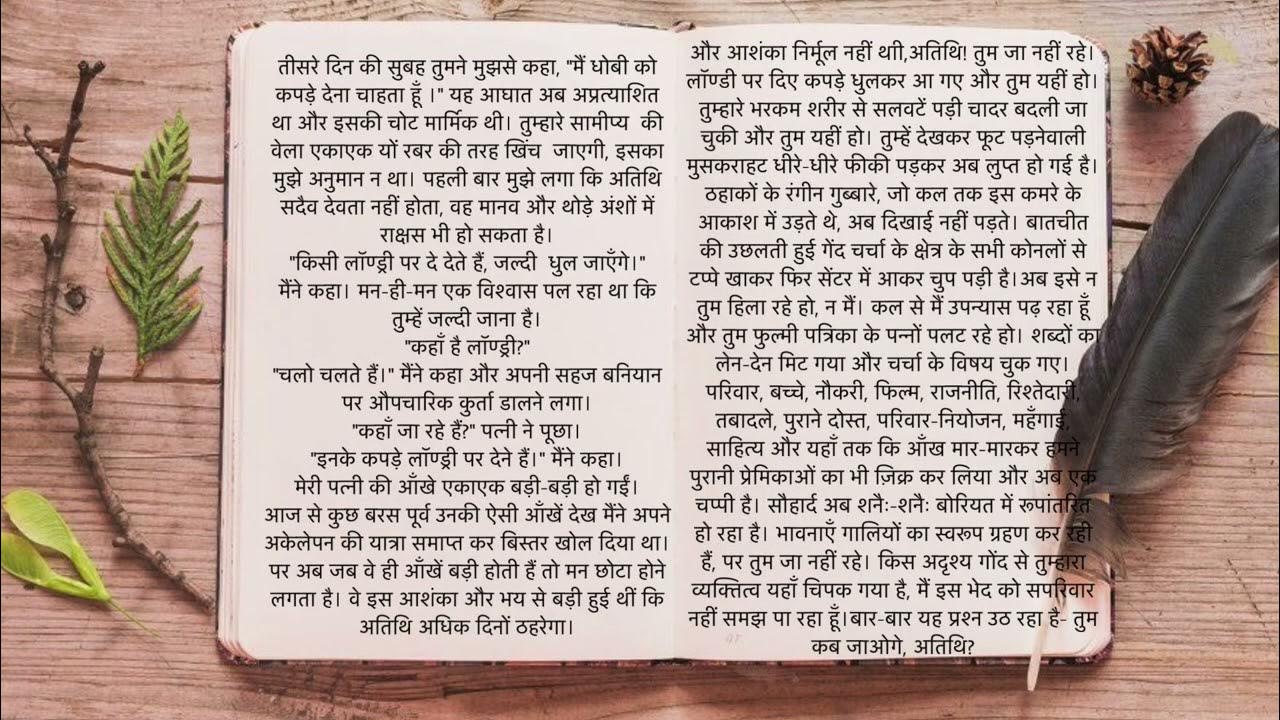 तीसरे दिन की सुबह तुमने मुझसे कहा, "मैं धोबी को
कपड़े देना चाहता हूँ ।" यह आघात अब अप्रत्याशित
था और इसकी चोट मार्मिक थी। तुम्हारे सामीप्य की
वेला एकाएक यों रबर की तरह खिंच जाएगी, इसका
मुझे अनुमान न था। पहली बार मुझे लगा कि अतिथि
सदैव देवता नहीं होता, वह मानव और थोड़े अंशों में
राक्षस भी हो सकता है।
"किसी लॉण्ड्री पर दे देते हैं, जल्दी धुल जाएँगे।"
मैंने कहा। मन-ही-मन एक विश्वास पल रहा था कि
तुम्हें जल्दी जाना है।
"कहाँ है लॉण्ड्री?"
"चलो चलते हैं।" मैंने कहा और अपनी सहज बनियान
पर औपचारिक कुर्ता डालने लगा।
"कहाँ जा रहे हैं?" पत्नी ने पूछा।
"इनके कपड़े लॉण्ड्री पर देने हैं।" मैंने कहा।
मेरी पत्नी की आँखे एकाएक बड़ी-बड़ी हो गईं।
आज से कुछ बरस पूर्व उनकी ऐसी आँखें देख मैंने अपने
अकेलेपन की यात्रा समाप्त कर बिस्तर खोल दिया था।
पर अब जब वे ही आँखें बड़ी होती हैं तो मन छोटा होने
लगता है। वे इस आशंका और भय से बड़ी हुई थीं कि
अतिथि अधिक दिनों ठहरेगा।
और आशंका निर्मूल नहीं थाी,अतिथि! तुम जा नहीं रहे।
लॉण्डी पर दिए कपड़े धुलकर आ गए और तुम यहीं हो।
तुम्हारे भरकम शरीर से सलवटें पड़ी चादर बदली जा
चुकी और तुम यहीं हो। तुम्हें देखकर फूट पड़नेवाली
मुसकराहट धीरे-धीरे फीकी पड़कर अब लुप्त हो गई है।
ठहाकों के रंगीन गुब्बारे, जो कल तक इस कमरे के
आकाश में उड़ते थे, अब दिखाई नहीं पड़ते। बातचीत
की उछलती हुई गेंद चर्चा के क्षेत्र के सभी कोनलों से
टप्पे खाकर फिर सेंटर में आकर चुप पड़ी है।अब इसे न
तुम हिला रहे हो, न मैं। कल से मैं उपन्यास पढ़ रहा हूँ
और तुम फुल्मी पत्रिका के पन्नों पलट रहे हो। शब्दों का
लेन-देन मिट गया और चर्चा के विषय चुक गए।
परिवार, बच्चे, नौकरी, फिल्म, राजनीति, रिश्तेदारी,
तबादले, पुराने दोस्त, परिवार-नियोजन, महँगाई,
साहित्य और यहाँ तक कि आँख मार-मारकर हमने
पुरानी प्रेमिकाओं का भी ज़िक्र कर लिया और अब एक
चप्पी है। सौहार्द अब शनैः-शनैः बोरियत में रूपांतरित
हो रहा है। भावनाएँ गालियों का स्वरूप ग्रहण कर रही
हैं, पर तुम जा नहीं रहे। किस अदृश्य गोंद से तुम्हारा
व्यक्तित्व यहाँ चिपक गया है, मैं इस भेद को सपरिवार
नहीं समझ पा रहा हूँ।बार-बार यह प्रश्न उठ रहा है- तुम
कब जाओगे, अतिथि?